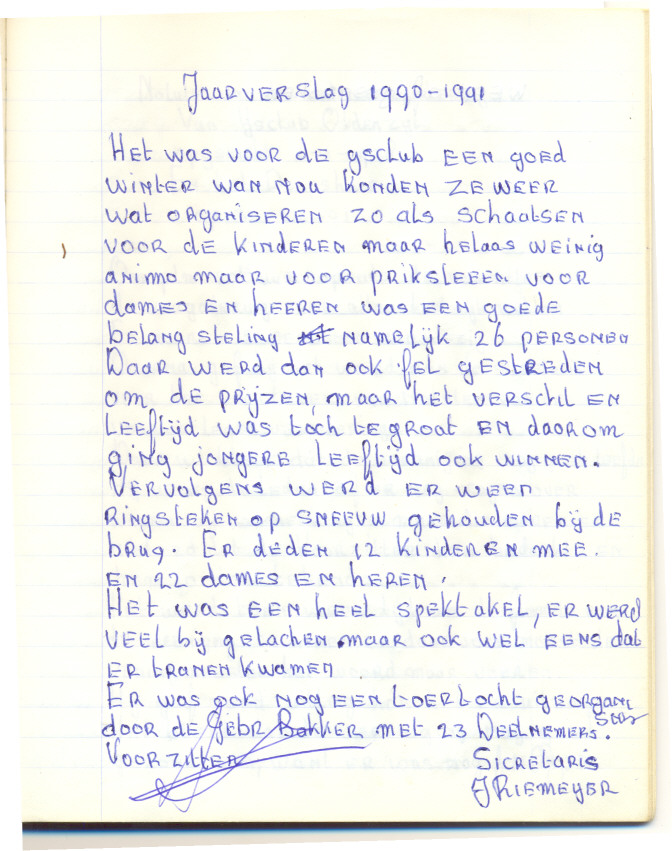 Jaarverslag 1990-1991
Het was voor de gsclub een goed
winter wan nou konden ze weer
wat organiseren zo als schaatsen
voor de kinderen maar helaas weinig
animo maar voor priksleeen voor
dames en heeren was een goede
belang steling namelijk 26 personen
Daar werd dan ook fel gestreden
om de prijzen, maar het verschil en
leeftijd was toch te groat en daarom
ging jongere leeftijd ook winnen.
Vervolgens werd er weer
ringsteken op sneeuw gehouden bij de
brug. Er deden 12 kinderen mee.
en 22 dames en heren.
Het was een heel spektakel, er werd
veel bij gelachen maar ook wel eens dat
er tranen kwamen
Er was ook nog een toertocht georgani
door de Gebr Bakker met 23 Deelnemers.
Voorzitter Sicretaris
J Riemeyer